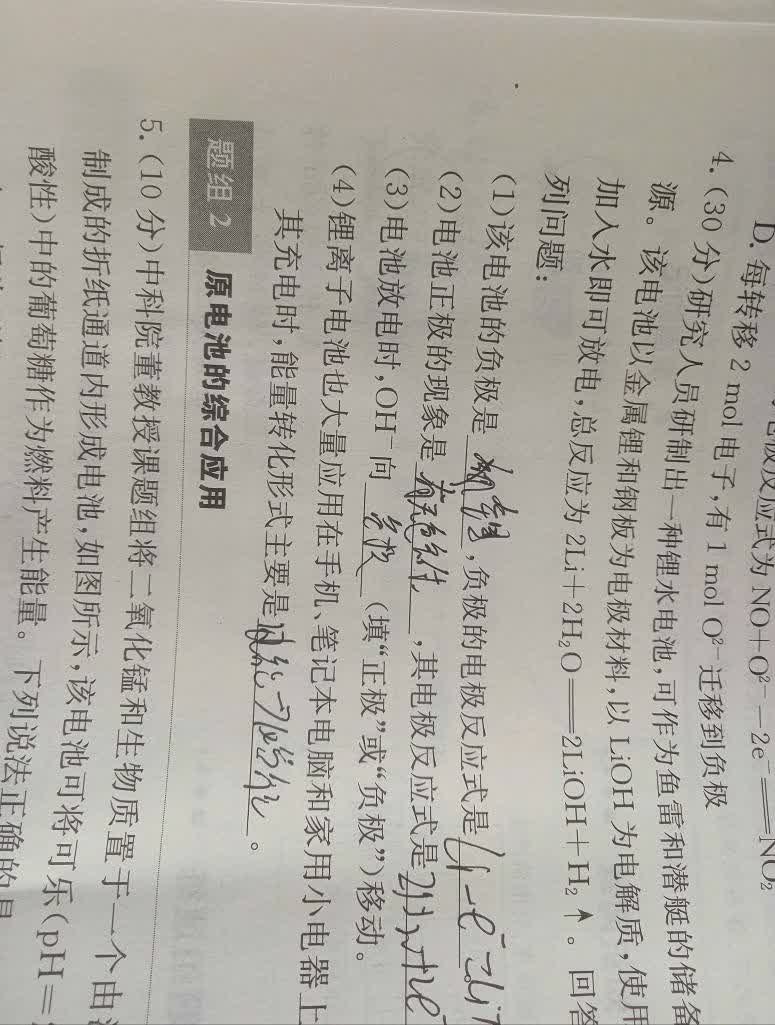 电极反应式为 NO+O²⁻-2e⁻══NO₂
D. 每转移 2 mol 电子,有 1 mol O²⁻ 迁移到负极
4. (30 分)研究人员研制出一种锂水电池,可作为鱼雷和潜艇的储备
源。该电池以金属锂和钢板为电极材料,以 LiOH 为电解质,使用
加入水即可放电,总反应为 2Li+2H₂O══2LiOH+H₂↑。回答
列问题:
(1)该电池的负极是,负极的电极反应式是 Li-e⁻=Li⁺
(2)电池正极的现象是,其电极反应式是
(3)电池放电时,OH⁻向 负极 (填“正极”或“负极”)移动。
(4)锂离子电池也大量应用在手机、笔记本电脑和家用小电器上
其充电时,能量转化形式主要是。
题组 2 原电池的综合应用
5. (10 分)中科院董教授课题组将二氧化锰和生物质置于一个由
制成的折纸通道内形成电池,如图所示,该电池可将可乐(pH=
酸性)中的葡萄糖作为燃料产生能量。下列说法正确的是